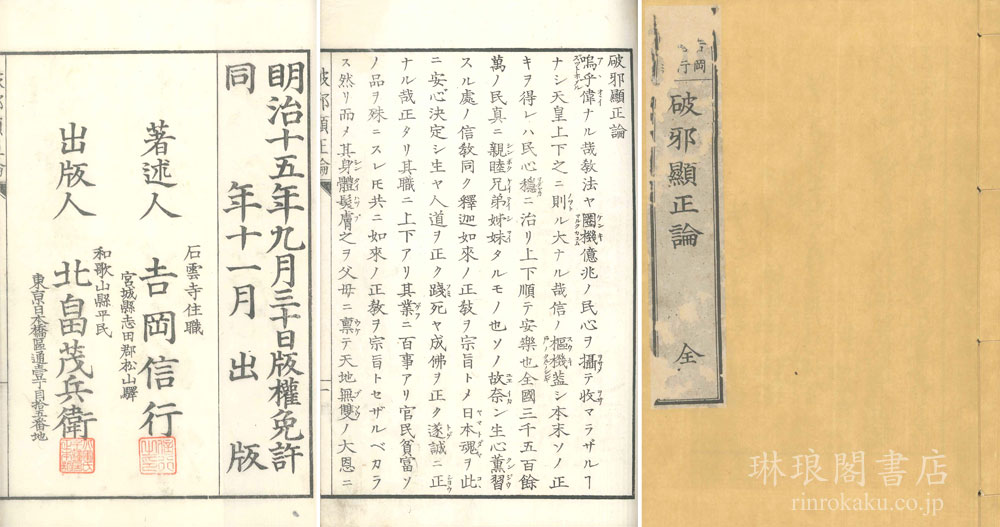 破邪顯正論
全
琳琅閣書店
rinrokaku.co.jp
破邪顯正論
嗚乎偉ナル哉敎法ヤ圈機億兆ノ民心ヲ攝テ收マラザルヿ
ナシ天皇上下之ニ則ル大ナル哉信ノ樞機蓋シ本末ソノ正
キヲ得レハ民心穩ニ治リ上下順テ安樂也全國三千五百餘
萬ノ民眞ニ親睦兄弟姊妹タルモノ也ソノ故奈ン生心薫習
スル處ノ信敎同ク釋迦如來ノ正敎ヲ宗旨トメ日本魂ヲ此
ニ安心決定シ生ヤ人道ヲ正ク踐死ヤ成佛ヲ正ク遂誠ニ正
ナル哉正タリ其職ニ上下アリ其業ニ百事アリ官民貧富ソ
ノ品ヲ殊ニスレ𪜈共ニ如來ノ正敎ヲ宗旨トセザルベカラ
ス然リ而メ其身體髮膚之ヲ父母ニ禀テ天地無雙ノ大恩ニ
明治十五年九月三十日版權免許
同年十一月出版
石雲寺住職
著述人 吉岡信行
宮城縣志田郡松山驛
和歌山縣平民
出版人 北畠茂兵衛
東京日本橋區通壹丁目拾五番地